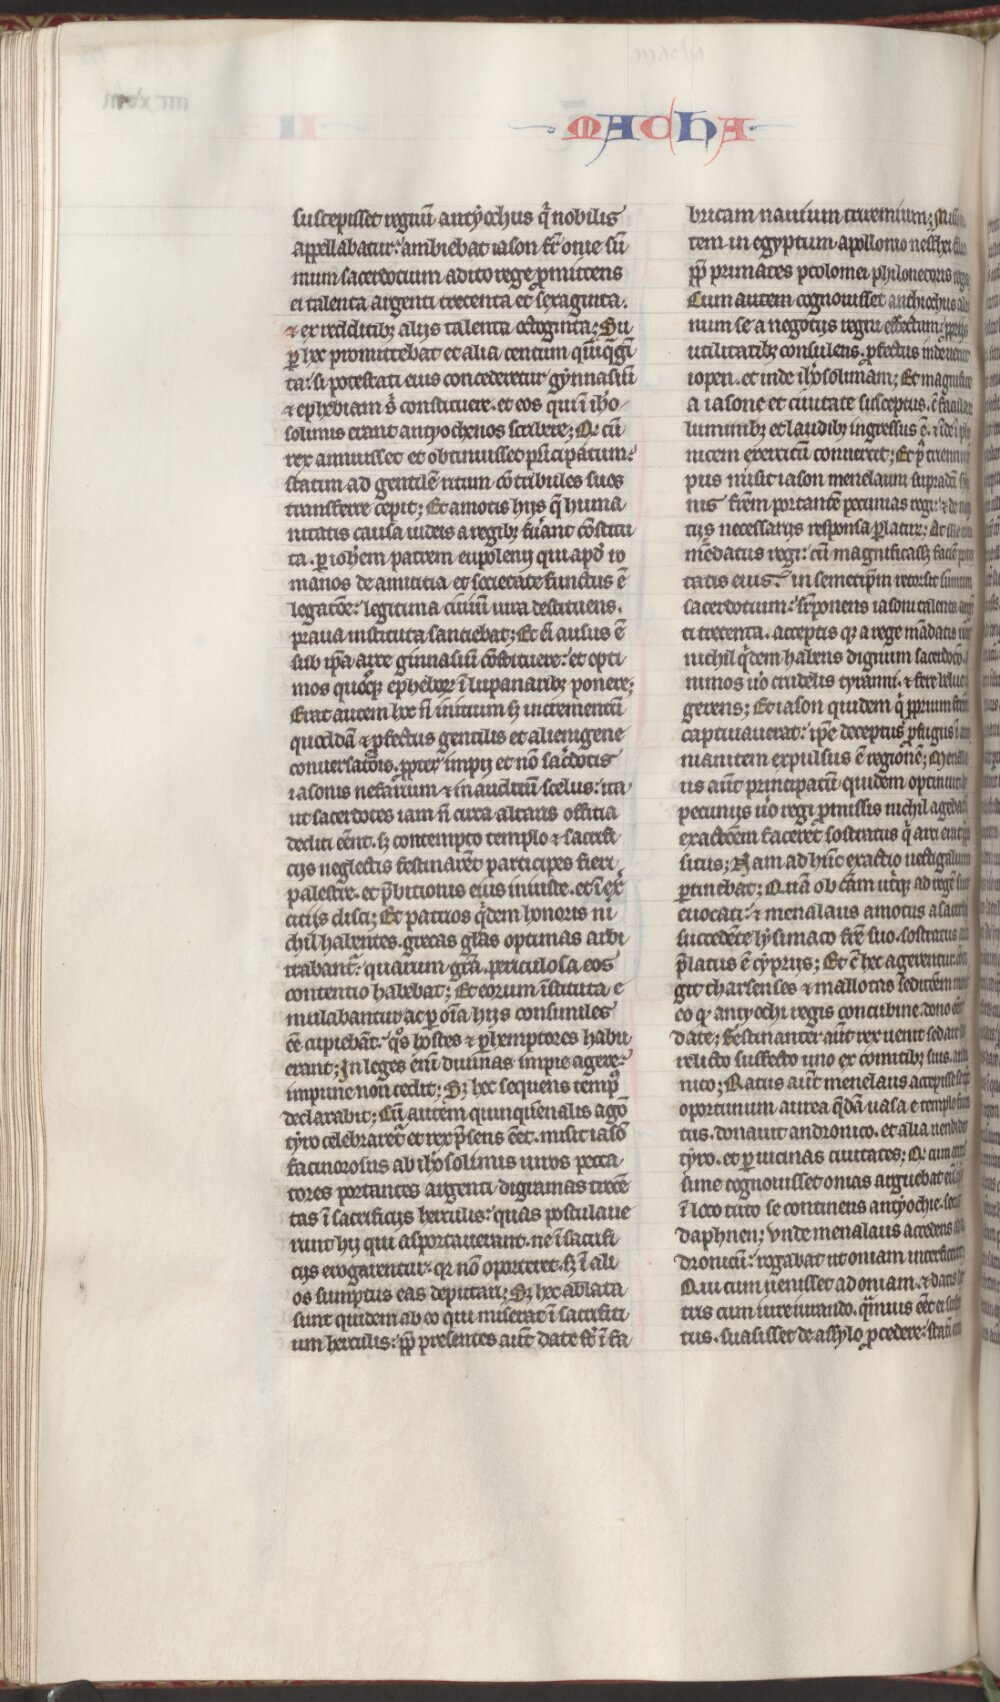 MACHA
suscepisset regnū antyochus q̄ nobilis
appellabatur: ambiebat iason fr̄ onie sū
mum sacerdotium adito rege ꝓmittens
ei talenta argenti trecenta et sexaginta.
⁊ ex redditibꝫ alijs talenta octoginta; Su
ꝑ hec promittebat et alia centum qui̅q̅gi̅
ta: si potestati eius concederetur gy̅nasiū
⁊ ephebiam s̓ constituere. et eos qui ī iħo
solimis erant antyochenos scribere; Qd̓ cū
rex annuisset et obtinuisset pͥncipatum:
statim ad gentilē ritum cōtribules suos
transferre cepit; Et amotis hijs q̄ huma
nitatis causa iudeis a regibꝫ fu̓ant cōstitu
ta. ꝑ ioħem patrem eupolemj qui apd̓ ro
manos de amicitia et societate functus ē
legatōe: legitima ciuiū iura destituens.
praua instituta sanciebat; Et eī ausus ē
sub ip̄a arce ginnasiū cōstituere: et opti
mos quosqꝫ epheboꝝ ī lupanaribꝫ ponere;
Erat autem hoc n̄ initium sꝫ incrementū
quoddā ⁊ ꝓfectus gentilis et alienigene
conuersatōis. ꝓpter impij et nō sac̓dotis
iasonis nefarium ⁊ inauditū scelus: ita
ut sacerdotes iam n̄ circa altaris officia
dediti eēnt. sꝫ contempto templo ⁊ sacrifi
cijs neglectis festinarēt participes fieri
palestre. et p̄bitionis eius iniuste. et ī ex̓
citijs disci; Et patrios q̄dem honoris ni
chil habentes. grecas gl̄as optimas arbi
trabant̄: quarum gr̄a. periculosa eos
contentio habebat; Et eorum īstituta e
mulabantur ac ꝑ oīa hijs consimiles
eē cupiebāt: q̓s hostes ⁊ ꝑhemptores habu
erant; In leges enī diuinas impie agere:
impune non cedit; Sꝫ hec sequens tempꝰ
declarabit; Cū autem quinquēnalis agō
tyro celebraret̄ et rex p̄sens eēt. misit iasō
facinorosus ab iħosolimis uiros pecca
tores portantes argenti digramas trecē
tas ī sacrificijs herculis: quas postulaue
runt hij qui asportauerant. ne ī sacrifi
cijs erogarentur. qr nō oporteret. sꝫ ī ali
os sumptus eas deputari; Sꝫ hec ablata
sunt quidem ab eo qui miserat ī sacrifici
um herculis: ꝓpt̄ presentes aūt date s̄t ī fa
bricam nauium triremium;
tem in egyptum apollonio nesthei
ꝓpt̄ primates ptolomei philometoris
Cum autem cognouisset anthiochus
num se a negotijs regni effectum: ꝓprijs
utilitatibꝫ consulens. ꝓfectus inde uenit
iopen. et inde iħosolimam; Et magnifice
a iasone et ciuitate susceptus. cū facular
luminibꝫ et laudibꝫ ingressus ē. ⁊ īde ī phe
nicem exercitū conuertit; Et p̓ trienniū
pus misit iason menelaum supradc̄i
nis fr̄em portantē pecunias regi: ⁊ de neg
tijs necessarijs responsa ꝑlatur; At ille cō
mēdatus regi: cū magnificass̄ faciē pote
tatis eius: in semetip̄m retorsit summū
sacerdotium: suꝑponens iasoni talenta
ti trecenta. acceptis qꝫ a rege mādatis
nichil q̄dem habens dignum sacerdotio.
nimos uo̓ crudelis tyranni. ⁊ fere belue
gerens; Et iason quidem q̄ ꝓprium
captiuauerat: ip̄e deceptus ꝓfugus ī
manitem expulsus ē regionē; Menela
us aūt principatū quidem optinuit
pecunijs uo̓ regi ꝓmissis nichil agebat
exactōem faceret sostratus q̄ arci erat
situs; Nam ad hūc exactio uectigalium
ꝑtinebat; Quā ob cām utq̄ꝫ ad regē
euocati: ⁊ menalaus amotus a
succedēte lysimaco fr̄e suo. sostratus
p̄latus ē cyprijs; Et cū hec agerentur
git tharsenses ⁊ mallotas seditiōem
eo qd̓ antyochi regis concubine. dono
date; Festinanter aūt rex uenit sedare
relicto suffecto uno ex comitibꝫ suis. and
nico; Ratus aūt menelaus accepisse
oportunum aurea q̄dā uasa e templo
tus. donauit andronico. et alia uendid
tyro. et ꝑ uicinas ciuitates; Qd̓ cum
sime cognouisset onias arguebat eū
ī loco tuto se continens antyochie.
daphnen; Vnde menalaus accedens
dronicū: rogabat ut oniam interficeret
Qui cum uenisset ad oniam. ⁊ datis
tris cum iureiurando. q̄muis eēt ei
tus. suasisset de assylo ꝓcedere: